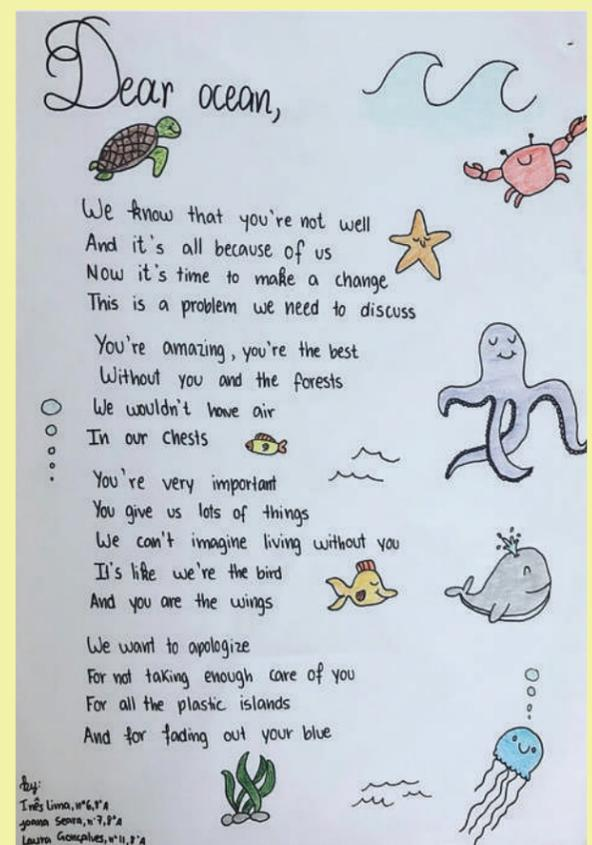 Dear ocean,
We know that you're not well
And it's all because of us
Now it's time to make a change
This is a problem we need to discuss
You're amazing, you're the best
Without you and the forests
We wouldn't have air
In our chests
You're very important
You give us lots of things
We can't imagine living without you
It's like we're the bird
And you are the wings
We want to apologize
For not taking enough care of you
For all the plastic islands
And for fading out your blue
by:
Inês Lima, nº6, 8ºA
Joana Seara, nº7, 8ºA
Laura Gonçalves, nº11, 8ºA